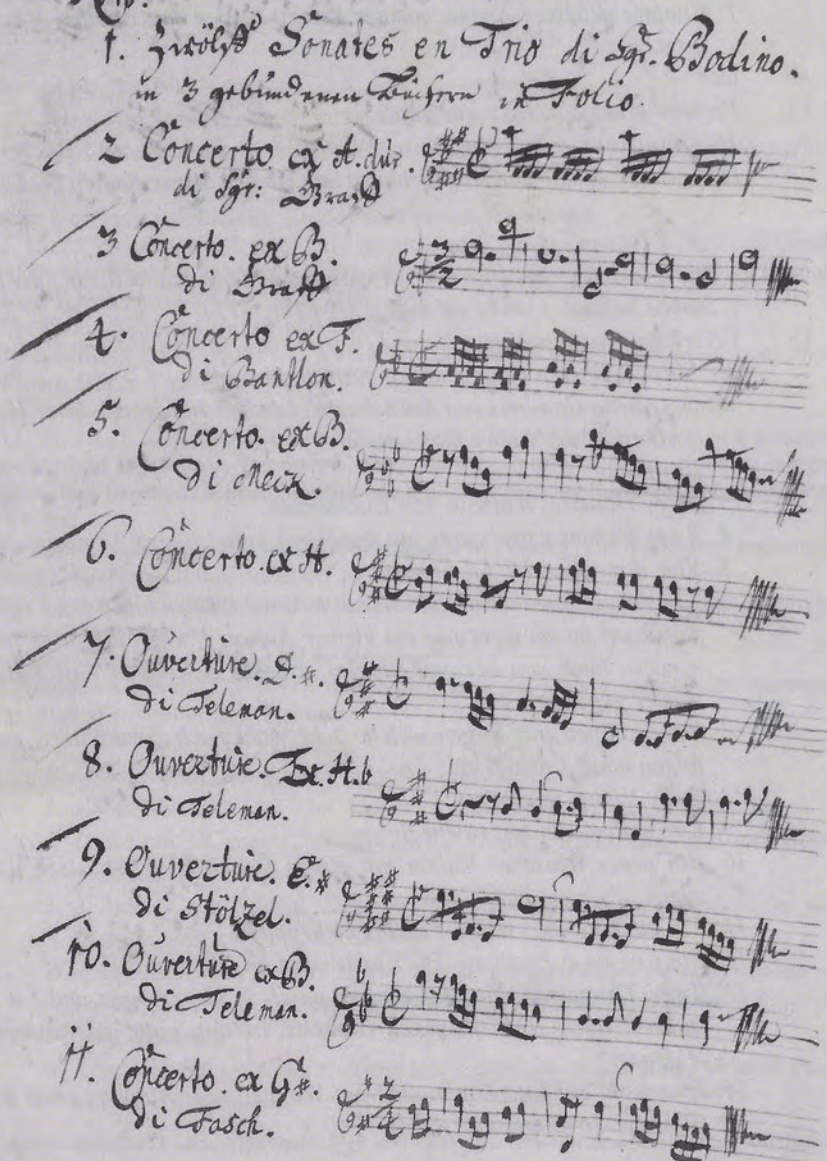 1. Zwölff Sonates en Trio di Sgr. Bodino.
in 3 gebundenen Büchern in Folio.
2 Concerto ex A. dur.
di Sgr: Graff
3 Concerto. ex B.
di Graff
4. Concerto ex F.
di Bantlon.
5. Concerto. ex B.
di Meck.
6. Concerto. ex H.
7. Ouverture. D. #.
di Teleman.
8. Ouverture. Ex. H. b
di Teleman.
9. Ouverture. E. #
di Stölzel.
10. Ouverture ex B.
di Teleman.
11. Concerto. ex G #.
di Fasch.